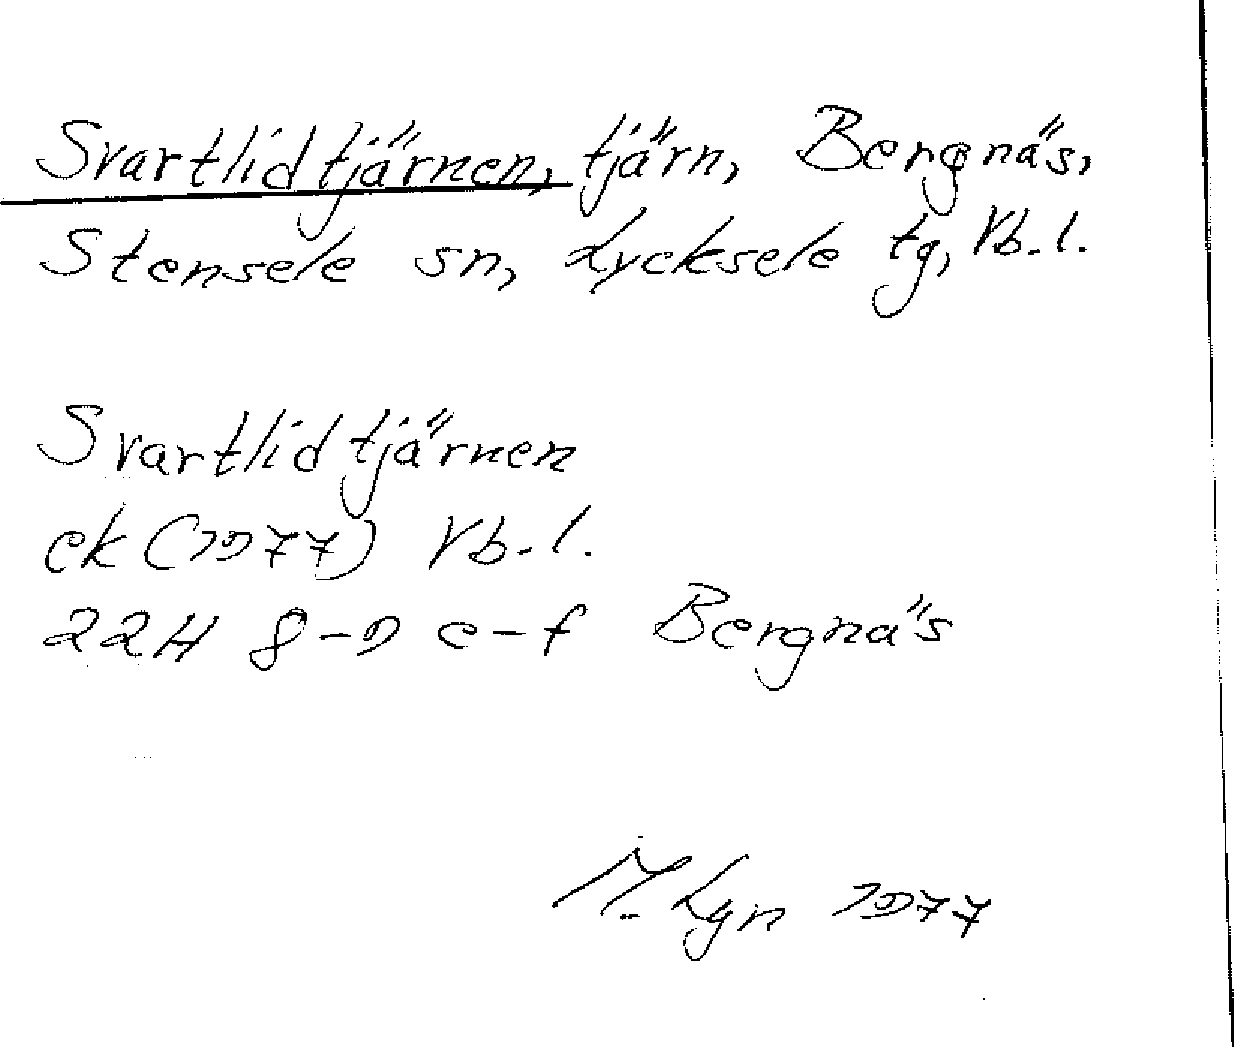 Svartlidtjärnen, tjärn, Bergnäs,
Stensele sn, Lycksele tg, Vb.l.
Svartlidtjärnen
ek (1977) Vb.l.
22H 8-9 e-f Bergnäs
M. Lyn 1977